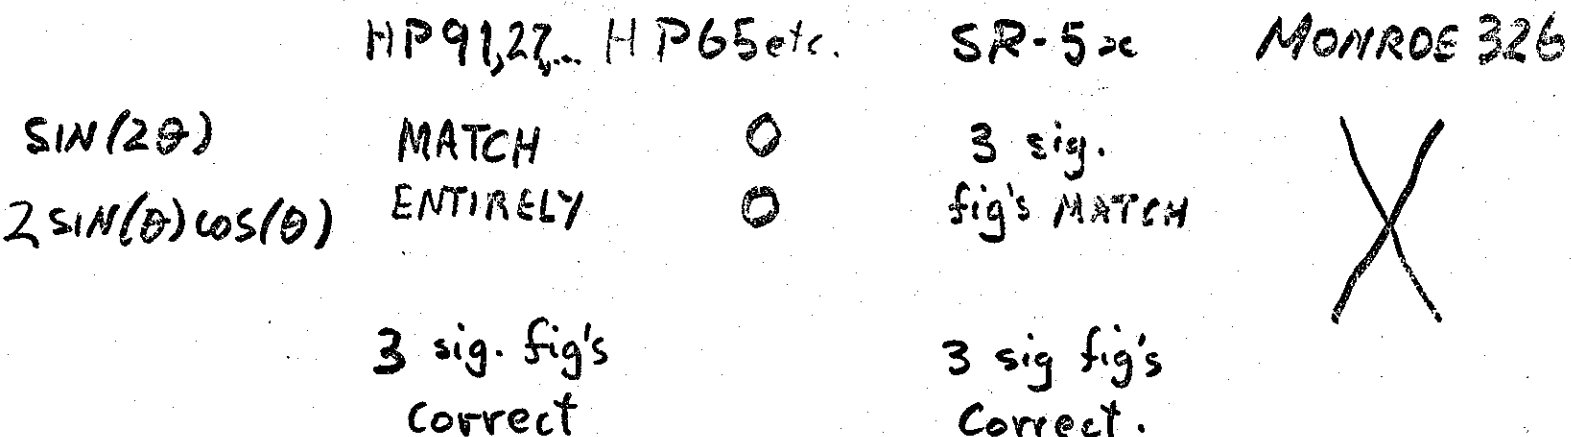 HP91,27,... HP65etc. SR-5x MONROE 326
SIN(2θ) MATCH 0 3 sig.
2SIN(θ)cos(θ) ENTIRELY 0 fig's MATCH X
3 sig. fig's 3 sig fig's
correct Correct.